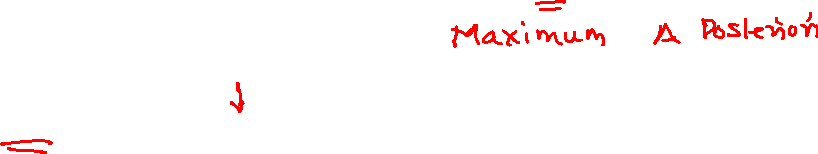 Maximum A Posteriori